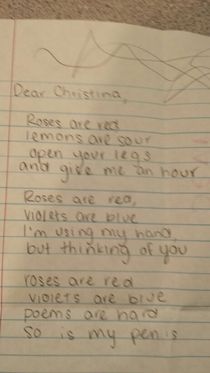 Dear Christina,
Roses are red
lemons are sour
open your legs
and give me an hour
Roses are red,
violets are blue
I'm using my hand
but thinking of you
roses are red
violets are blue
poems are hard
so is my penis